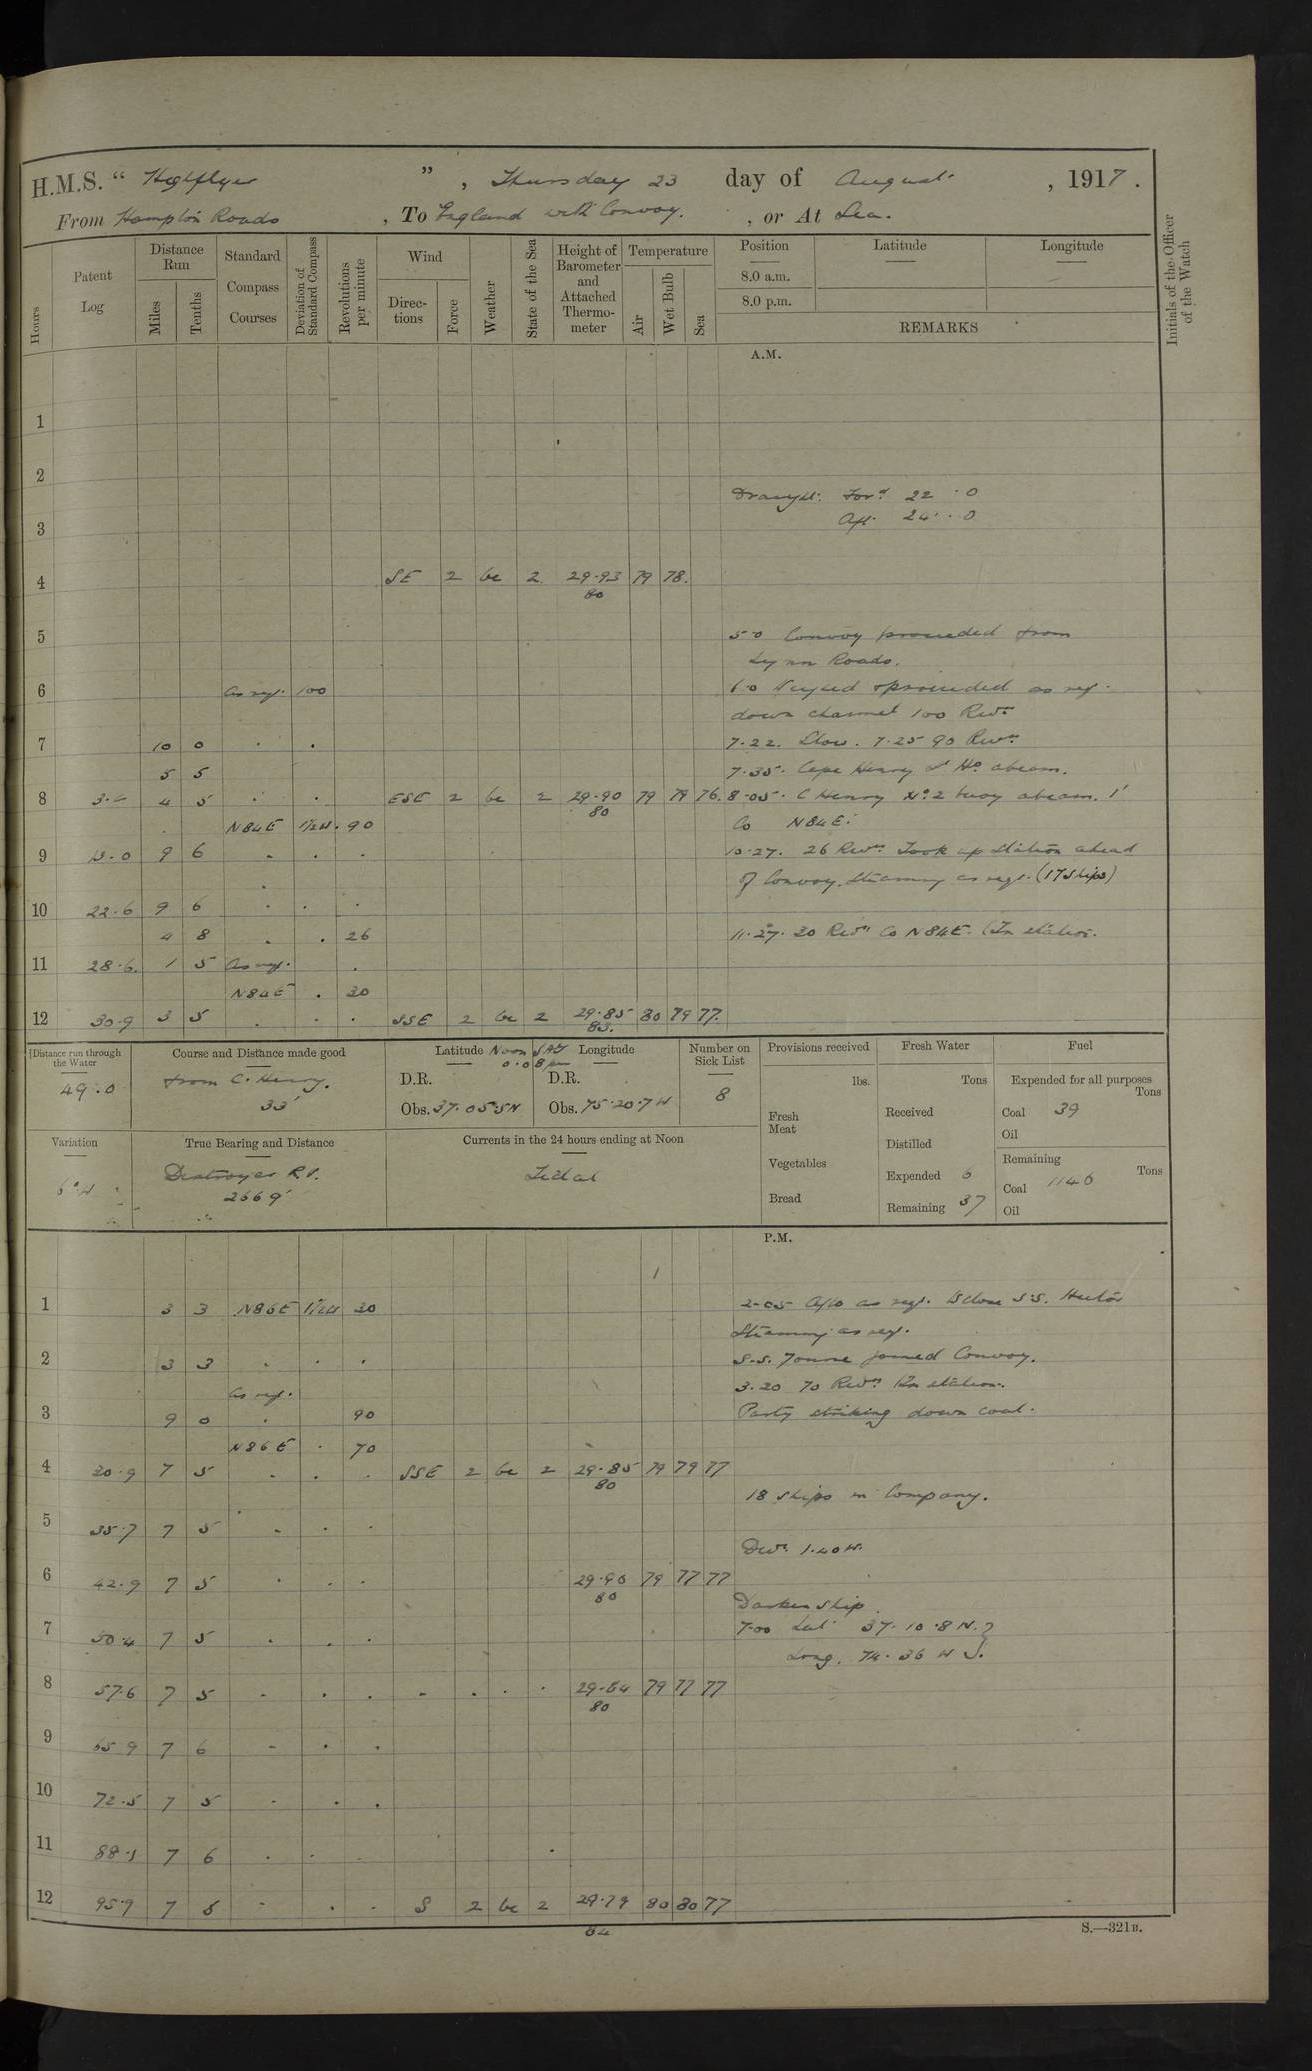 H.M.S. “ Highflyer ” , Thursday 23 day of August , 1917.
From Hampton Roads , To England with Convoy. , or At Sea.
Hours
Patent Log
Distance Run
Miles
Tenths
Standard Compass Courses
Deviation of Standard Compass
Revolutions per minute
Wind
Directions
Force
Weather
State of the Sea
Height of Barometer and Attached Thermometer
Temperature
Air
Wet Bulb
Sea
Position
8.0 a.m.
8.0 p.m.
Latitude
Longitude
REMARKS
Initials of the Officer of the Watch
A.M.
1
2
Draught: Ford 22 . 0
3 Aft. 24 . 0
4 SE 2 bc 2 29.93 79 78.
80
5 5.0 Convoy proceeded from
Lynn Roads.
6 As req. 100 6.0 Weighed & proceeded as req.
down channel 100 Revs
7 10 0 . . 7.22. Slow. 7.25 90 Revs.
5 5 7.35. Cape Henry Lt Ho. abeam.
8 4 5 . . ESE 2 bc 2 29.90 79 79 76. 8.05. C Henry No. 2 buoy abeam. 1'
80
N84E 1½W. 90 Co N84E.
9 13.0 9 6 . . . 10.27. 26 Revs. Took up station ahead
of Convoy. Steaming as req. (17 Ships)
10 22.6 9 6 . . .
4 8 . . 26 11.27. 30 Revs Co N84E. (In station.
11 28.6. 1 5 As req. .
N84E . 30
12 30.9 3 5 . . . SSE 2 bc 2 29.85 80 79 77.
83.
Distance run through the Water
49.0
Course and Distance made good
from C. Henry.
33'
Latitude Noon
D.R.
Obs. 37.05.5N
Longitude
D.R.
Obs. 75.20.7W
Number on Sick List
8
Provisions received
lbs.
Fresh Meat
Vegetables
Bread
Fresh Water
Tons
Received
Distilled
Expended 6
Remaining 37
Fuel
Expended for all purposes
Tons
Coal 39
Oil
Remaining
Tons
Coal 1146
Oil
Variation
6°W
True Bearing and Distance
Destroyer R.V.
2669'
Currents in the 24 hours ending at Noon
Tidal
P.M.
1 3 3 N86E 1½W 30 2-05 A/Co as req. to close S.S. Hector
Steaming as req.
2 3 3 . . . S.S. joined Convoy.
As req. 3.20 70 Revs In station.
3 9 0 . 90 Party striking down coal.
N86E . 70
4 20.9 7 5 . . . SSE 2 bc 2 29.85 79 79 77
80
18 Ships in Company.
5 35.7 7 5 . . .
Devn. 1.40W.
6 42.9 7 5 . . . 29.90 79 77 77
80
Darken Ship
7 50.4 7 5 . . . 7.00 Lat 37.10.8 N.
Long. 74.36 W
8 57.6 7 5 . . . . . . . 29.84 79 77 77
80
9 65.9 7 6 . . .
10 72.5 7 5 . . .
11 88.1 7 6 . . .
12 95.9 7 5 . . . S 2 bc 2 29.79 80 80 77
84
S.—321B.